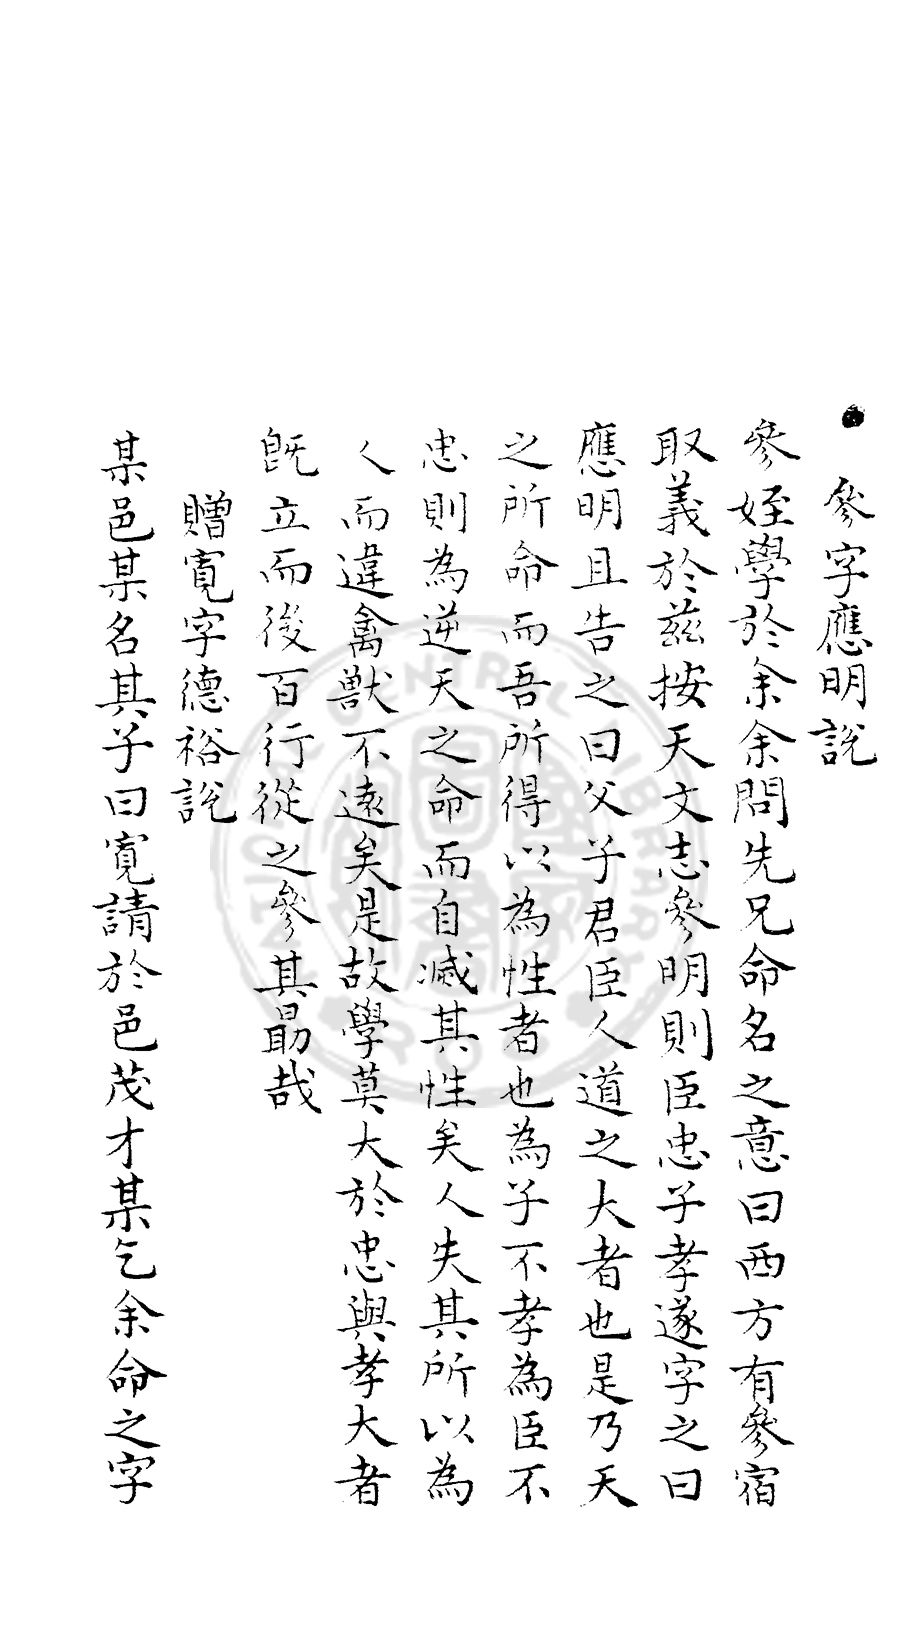 參字應明說
參姪學於余余問先兄命名之意曰西方有參宿
取義於茲按天文志參明則臣忠子孝遂字之曰
應明且告之曰父子君臣人道之大者也是乃天
之所命而吾所得以為性者也為子不孝為臣不
忠則為逆天之命而自滅其性矣人失其所以為
人而違禽獸不遠矣是故學莫大於忠與孝大者
旣立而後百行從之參其勗哉
贈寬字德裕說
某邑某名其子曰寬請於邑茂才某乞余命之字
CENTRAL LIBRARY